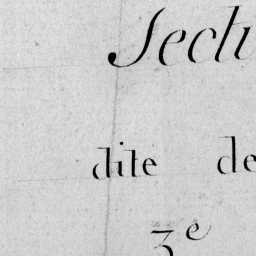 Secti
dite de
3e